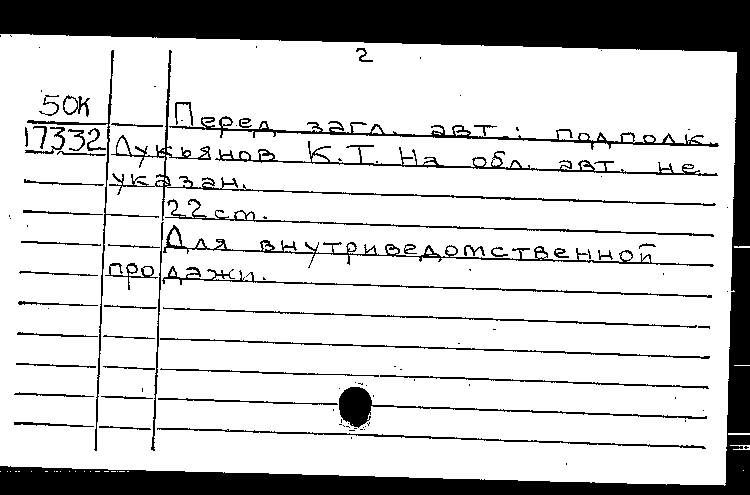 2
50К
17332
Перед загл. авт.: подполк.
Лукьянов К.Т. На обл. авт. не
указан.
22 ст.
Для внутриведомственной
продажи.